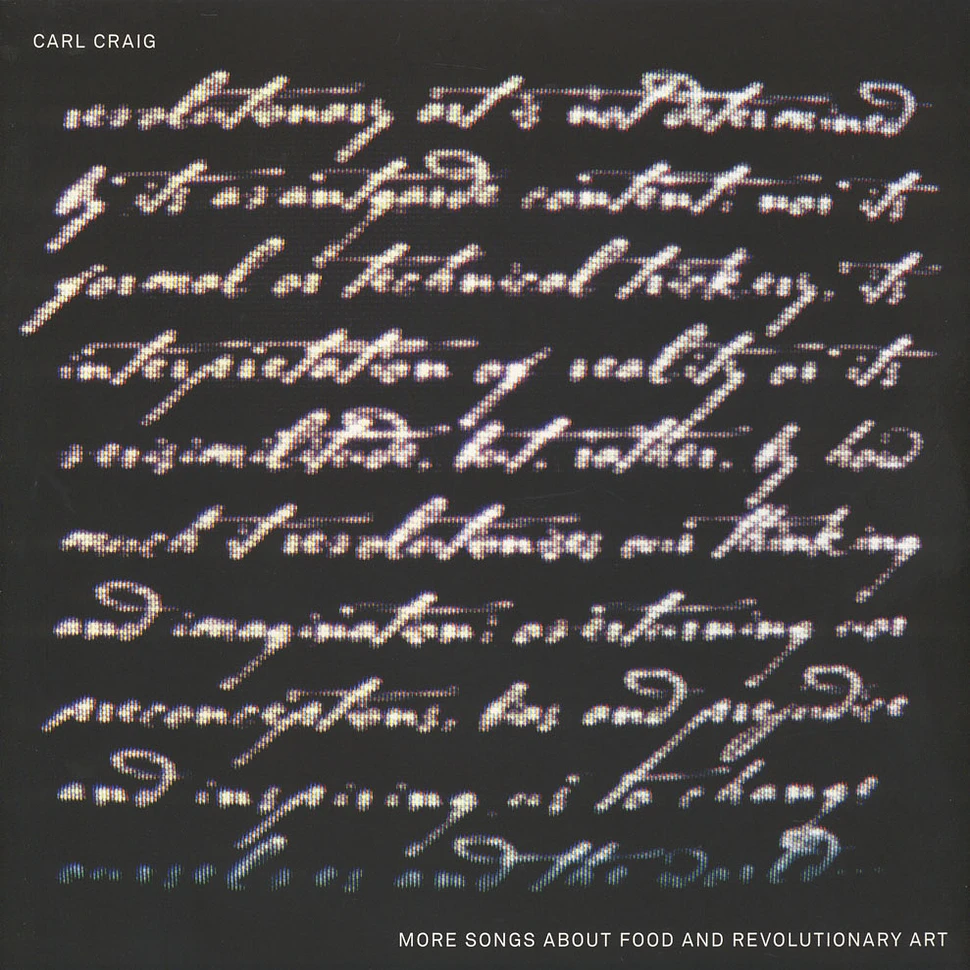 CARL CRAIG
revolutionary art is not determined
by its avantgarde content: nor its
formal or technical trickery. its
interpretation of reality or its
verisimilitude, but, rather, by how
much it revolutionises our thinking
and imagination: overturning our
preconceptions, bias and prejudice
and inspiring us to change
ourselves and the world
MORE SONGS ABOUT FOOD AND REVOLUTIONARY ART